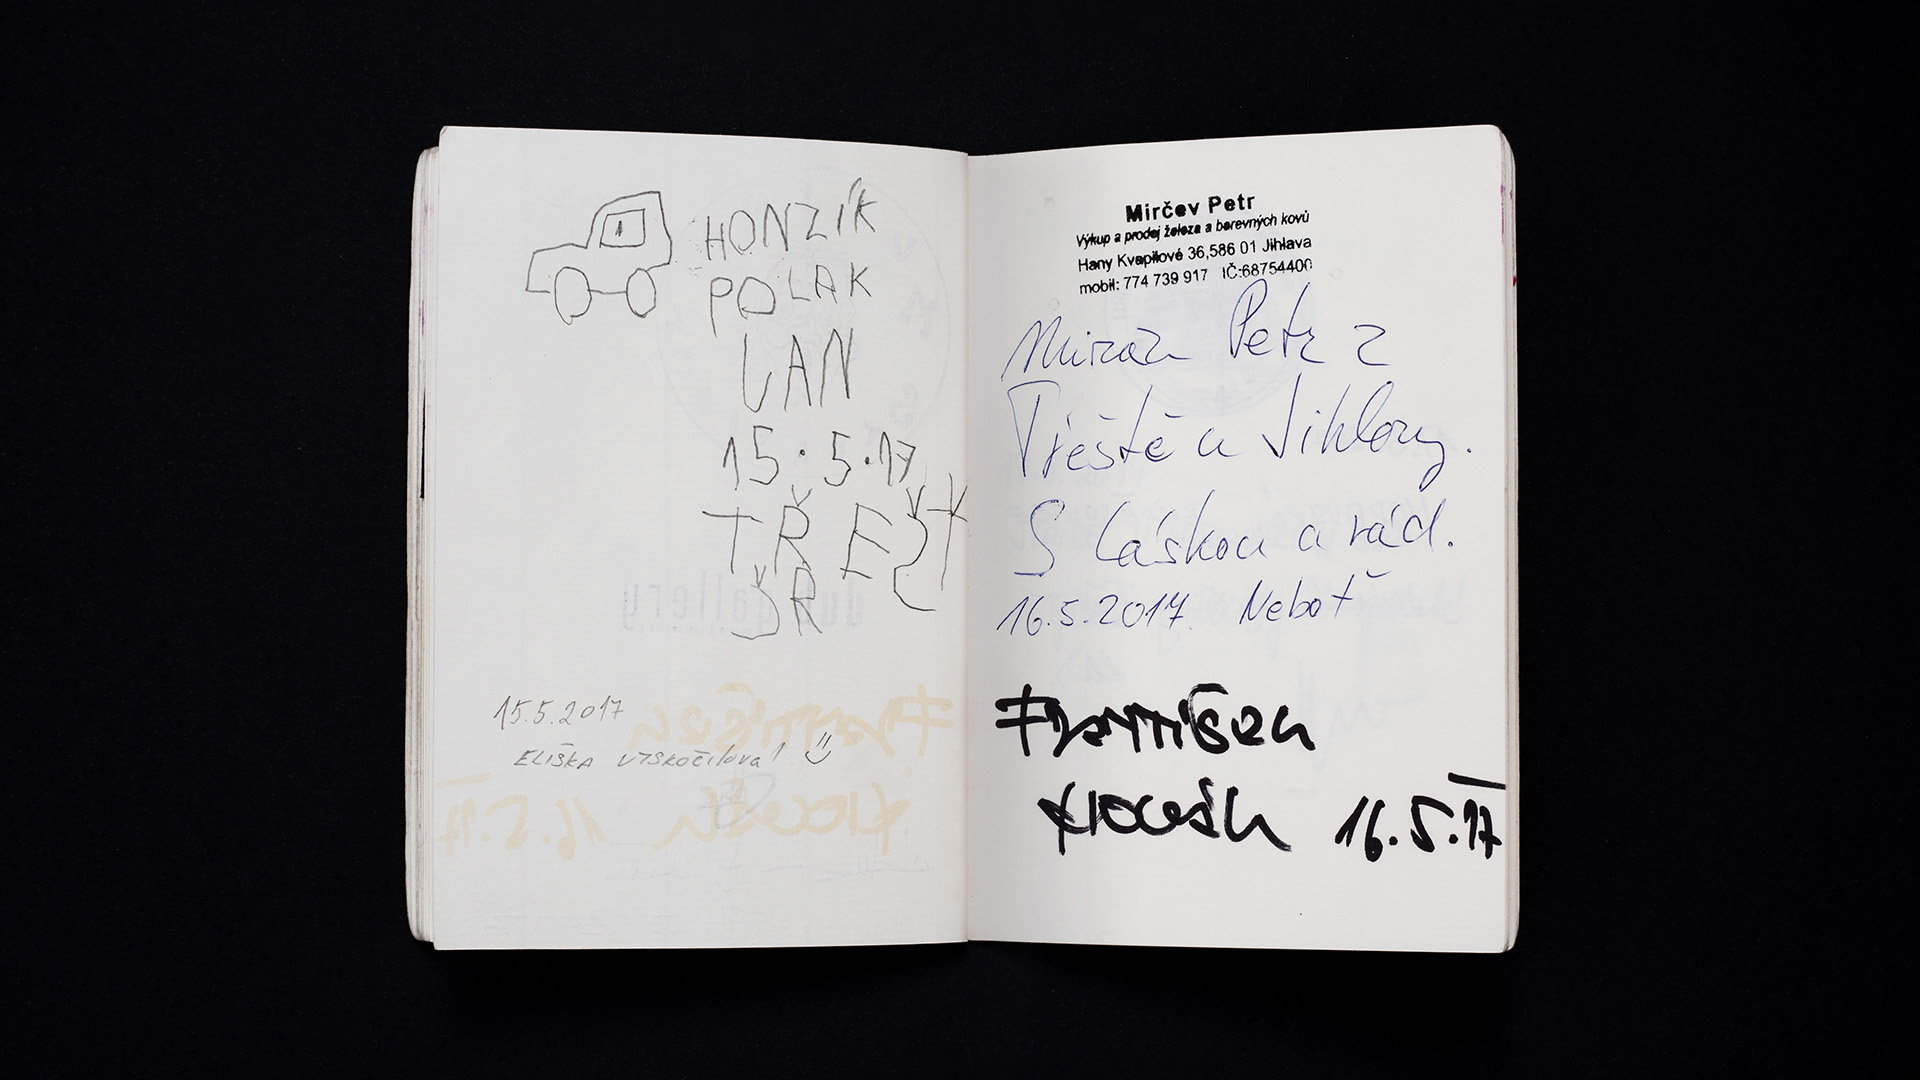 HONZÍK
POLAK
LAN
15.5.17
TŘEŠŤ
ŠR
15.5.2017
ELIŠKA VYSKOČILOVA!
Mirčev Petr
Výkup a prodej železa a barevných kovů
Hany Kvapilové 36,586 01 Jihlava
mobil: 774 739 917 IČ:68754400
Petr z
Třeště a Jihlavy.
S láskou a rád.
16.5.2017 Neboť
František
16.5.17